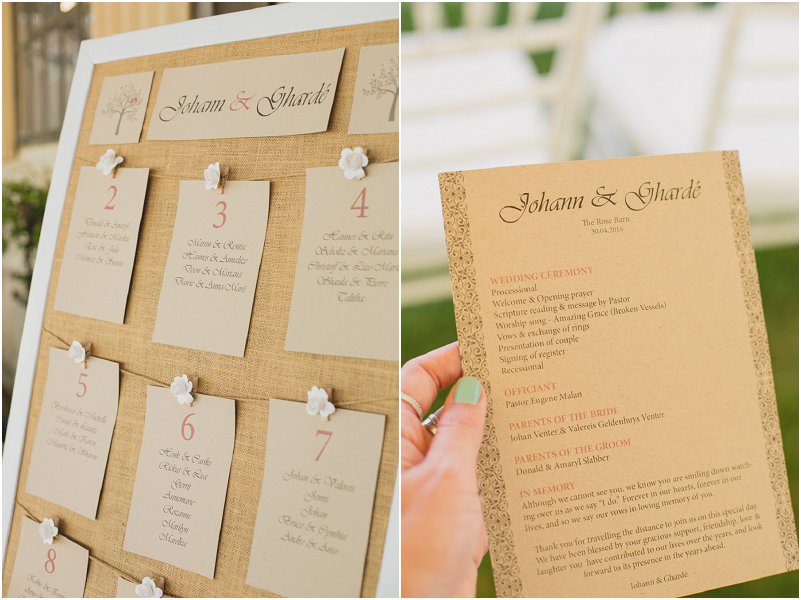 Johann & Ghardé
2
Donald & Amaryl
Francis & Marilin
Rose & Julie
Monica & Sunita
3
Martin & Renita
Hannes & Annalize
Deon & Maryana
Dawie & Anna-Maré
4
Hannes & Rita
Scholtz & Mariana
Christoff & Lucy-Mari
Shanda & Pierre
Talitha
5
Bernhard & Michelle
Carool & Lizette
Mark & Karen
Maurice & Sharon
6
Henk & Carike
Rufus & Lisa
Gerrit
Annemarie
Rozanne
Marilyn
Marelize
7
Johan & Valereis
Jenni
Johan
Bruce & Cynthia
Andre & Anus
8
Kobus &
Johann & Ghardé
The Rose Barn
30.04.2016
WEDDING CEREMONY
Processional
Welcome & Opening prayer
Scripture reading & message by Pastor
Worship song - Amazing Grace (Broken Vessels)
Vows & exchange of rings
Presentation of couple
Signing of register
Recessional
OFFICIANT
Pastor Eugene Malan
PARENTS OF THE BRIDE
Johan Venter & Valereis Geldenhuys Venter
PARENTS OF THE GROOM
Donald & Amaryl Slabber
IN MEMORY
Although we cannot see you, we know you are smiling down watch-
ing over us as we say "I do". Forever in our hearts, forever in our
lives, and so we say our vows in loving memory of you.
Thank you for travelling the distance to join us on this special day.
We have been blessed by your gracious support, friendship, love &
laughter you have contributed to our lives over the years, and look
forward to its presence in the years ahead.
Johann & Ghardé